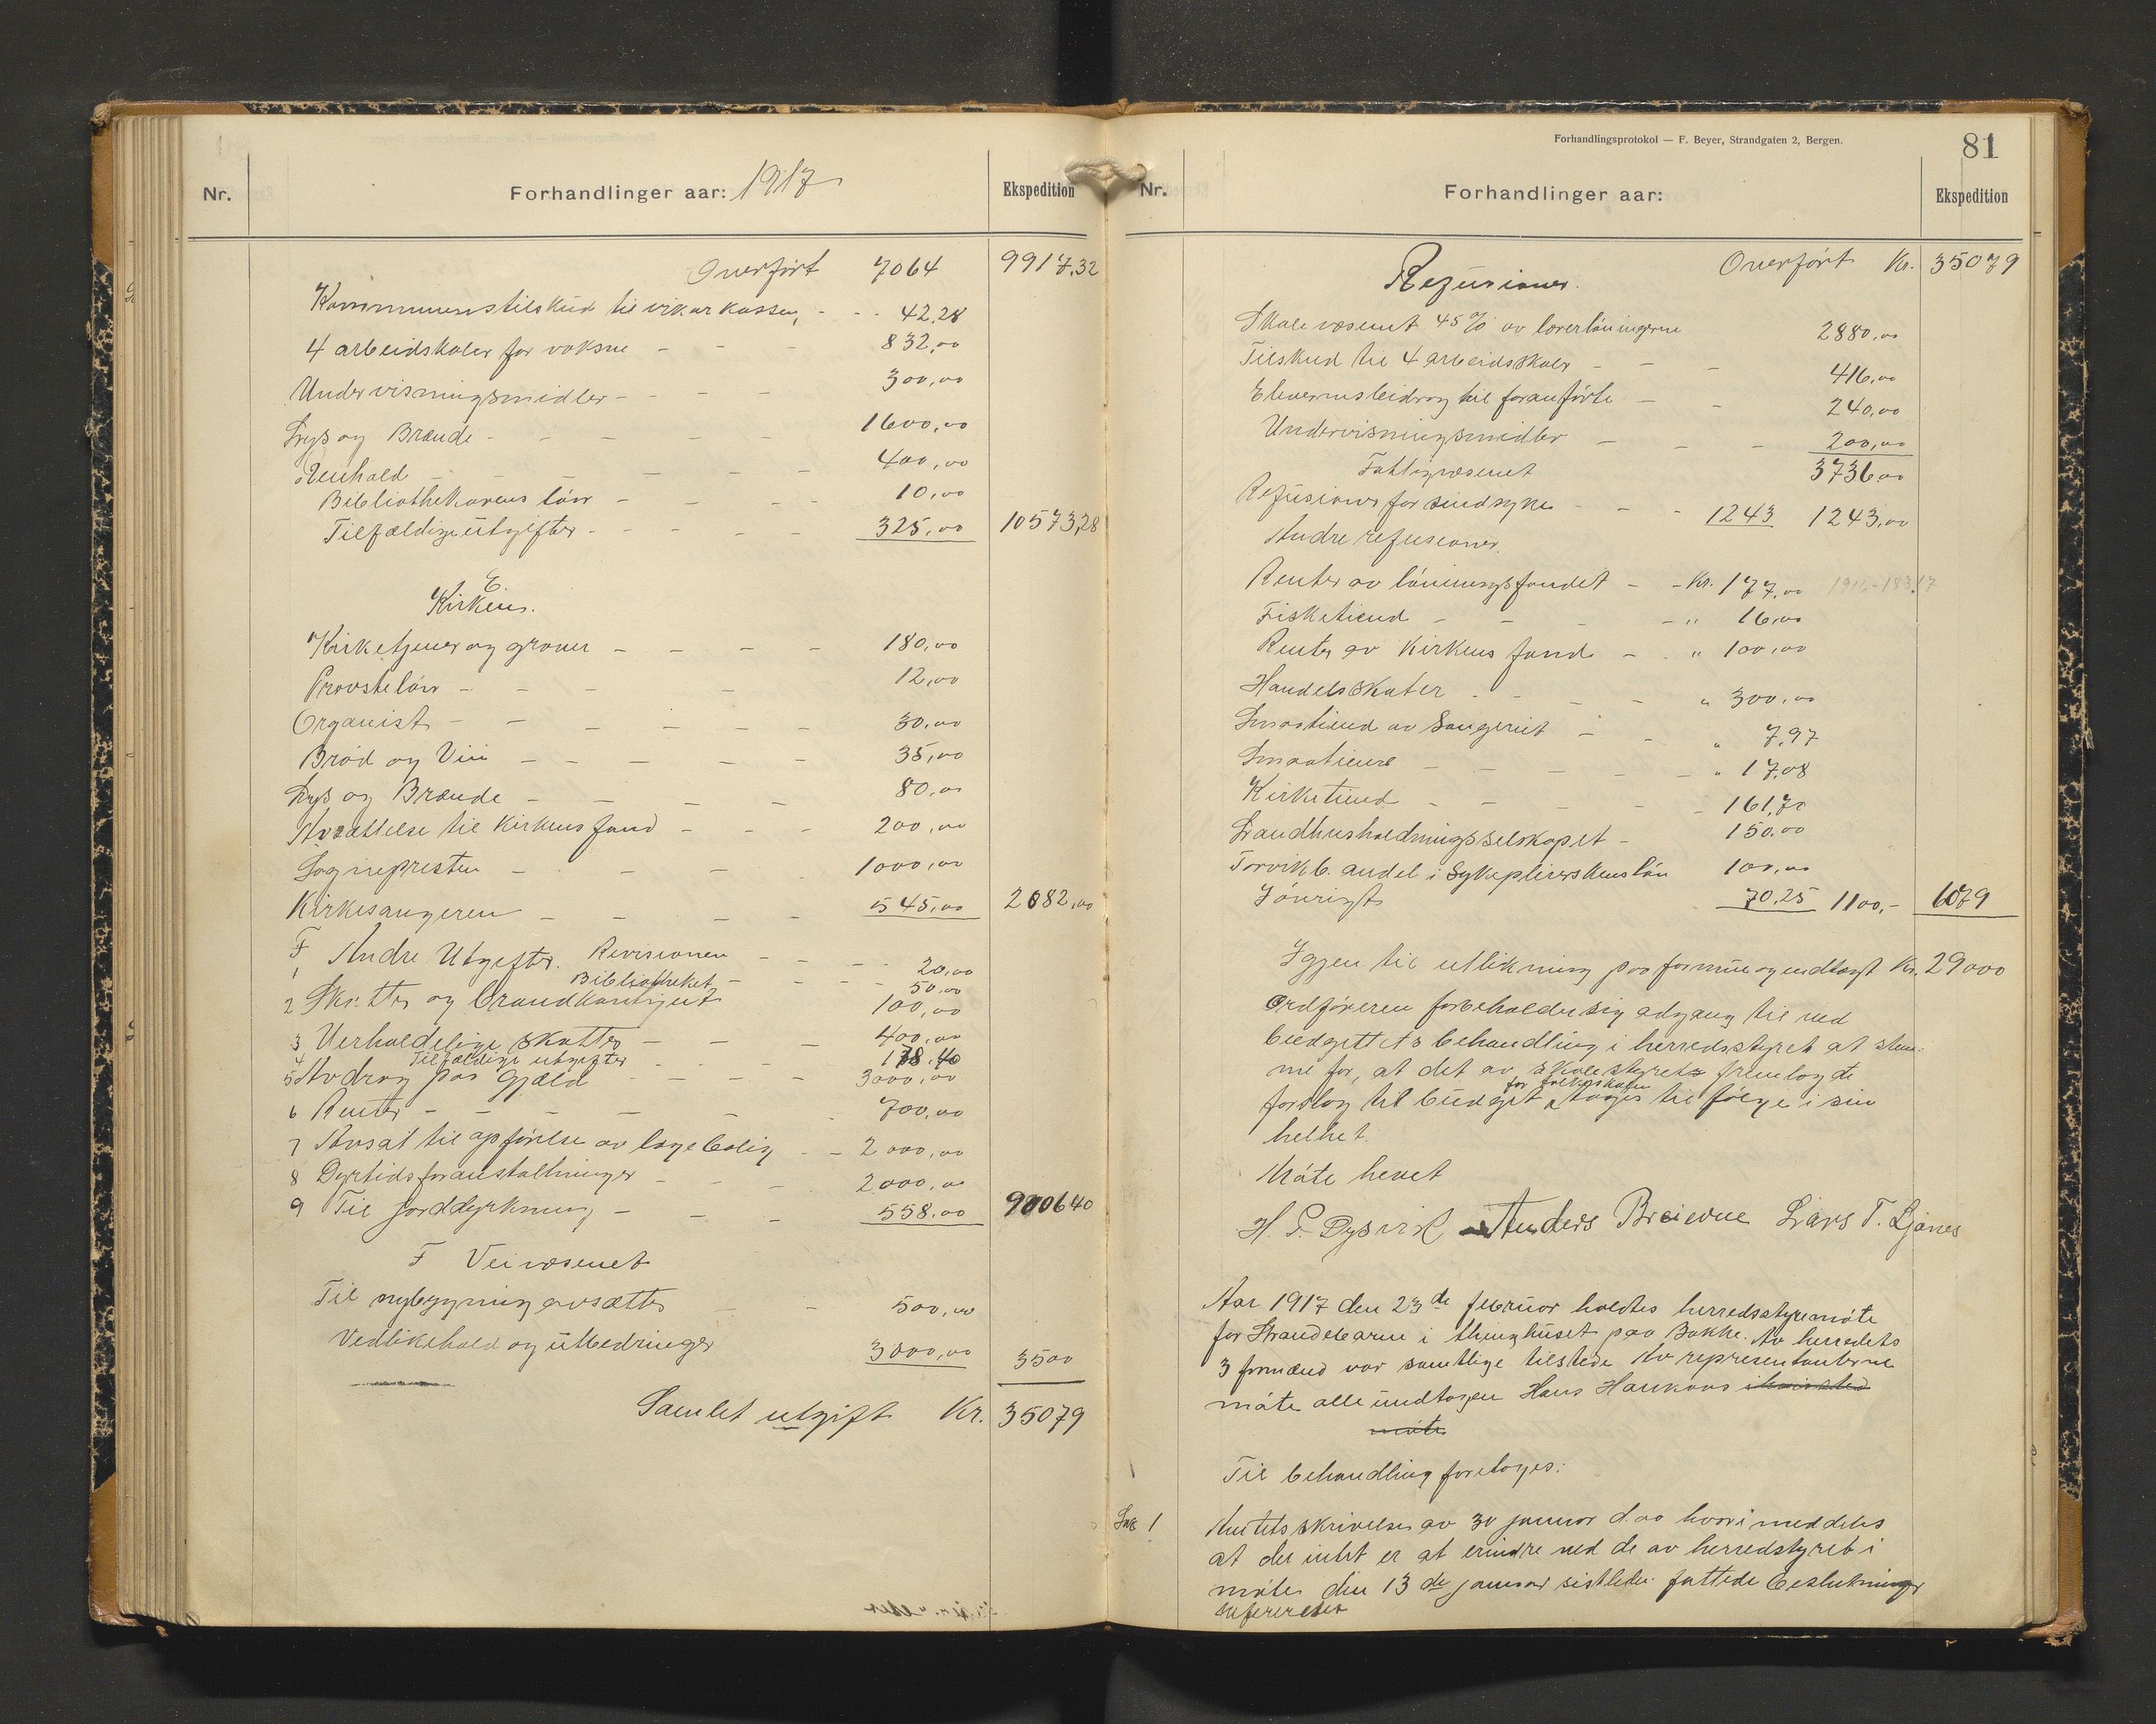 Nr.
Forhandlinger aar: 1917
Ekspedition
Overført 7064 9917,32
Kommunens tilskud til vikarkassen, - - 42,28
4 arbeidskoler for voksne - - - 832,00
Undervisningsmidler - - - - 300,00
Lys og Brænde - - - - - 1600,00
Renhold - - - - - 400,00
Bibliothekarens løn - - - - 10,00
Tilfældige utgifter - - - - 325,00 10573,28
E.
Kirken.
Kirketjener og graver - - - - 180,00
Provsteløn - - - - 12,00
Organist - - - - - - 30,00
Brød og Vin - - - - - 35,00
Lys og Brænde - - - - 80,00
Avsættelse til Kirkens fond - - - 200,00
Sognepresten - - - 1000,00
Kirkesangeren - - - - 545,00 2082,00
F Andre Utgifter. Revisionen - - - - 20,00
1 Bibliotheket - - - - 50,00
2 Skatter og brandkontigent 100,00
3 Uerholdelige skatter - - - 400,00
4 Tilfældige utgifter - - - 178.40
5 Avdrag paa Gjæld - - - - 3000,00
6 Renter - - - - - 700,00
7 Avsat til opførelse av lægebolig - - 2000,00
8 Dyrtidsforanstaltninger - - - 2000,00
9 Til jorddyrkning - - - 558.00 900640
F Veivæsenet
Til nybygning avsættes - - 500,00
Vedlikehold og utbedringer 3000,00 3500
Samlet utgift Kr. 35079
Forhandlingsprotokol — F. Beyer, Strandgaten 2, Bergen.
81
Nr.
Forhandlinger aar:
Ekspedition
Overført Kr. 35079
Refusioner.
Skolevæsenet 45% av lærerlønningerne 2880,00
Tilskud til 4 arbeidsskoler - - - 416,00
Elevernes bidrag til foranførte - - 240,00
Undervisningsmidler - - - 200,00
Fattigvæsenet 3736,00
Refusioner for sindsyke - - - 1243 1243,00
Andre refusioner.
Renter av lønningsfondet - - Kr. 177,00
Fisketiend - - - - " 16,00
Renter av Kirkens fond - - " 100,00
Handelsskatter - - - - " 300,00
Smaatiend av Sangeriet - - " 7,97
Smaatiend - - - - - " 17,08
Kirketiend - - - - - 161,70
Landhusholdningsselskapet - 150,00
Torvikb. andel i Sykepleierskens løn 100,00
Iøvrigt 70,25 1100,- 6079
Igjen til utlikning paa formue og indtægt Kr. 29000
Ordføreren forbeholder sig adgang til ved
budgettets behandling i herredsstyret at stem-
me for, at det av skolestyret fremlagte
forslag til budget for folkeskolen tages til følge i sin
helhet.
Møte hevet
H. P. Dysvik Anders Breievne Lars T. Ljønes
Aar 1917 den 23de februar holdtes herredsstyremøte
for Strandebarm i thinghuset paa Bakke. Av herredets
3 formænd var samtlige tilstede Av representanterne
møte alle undtagen Hans Haukaas
møte
Til behandling foretoges:
Sak 1
Amtets skrivelse av 30 januar d.aa hvori meddeles
at der intet er at erindre ved de av herredstyret i
møte den 13de januar sistleden fattede beslutninger
refereredes